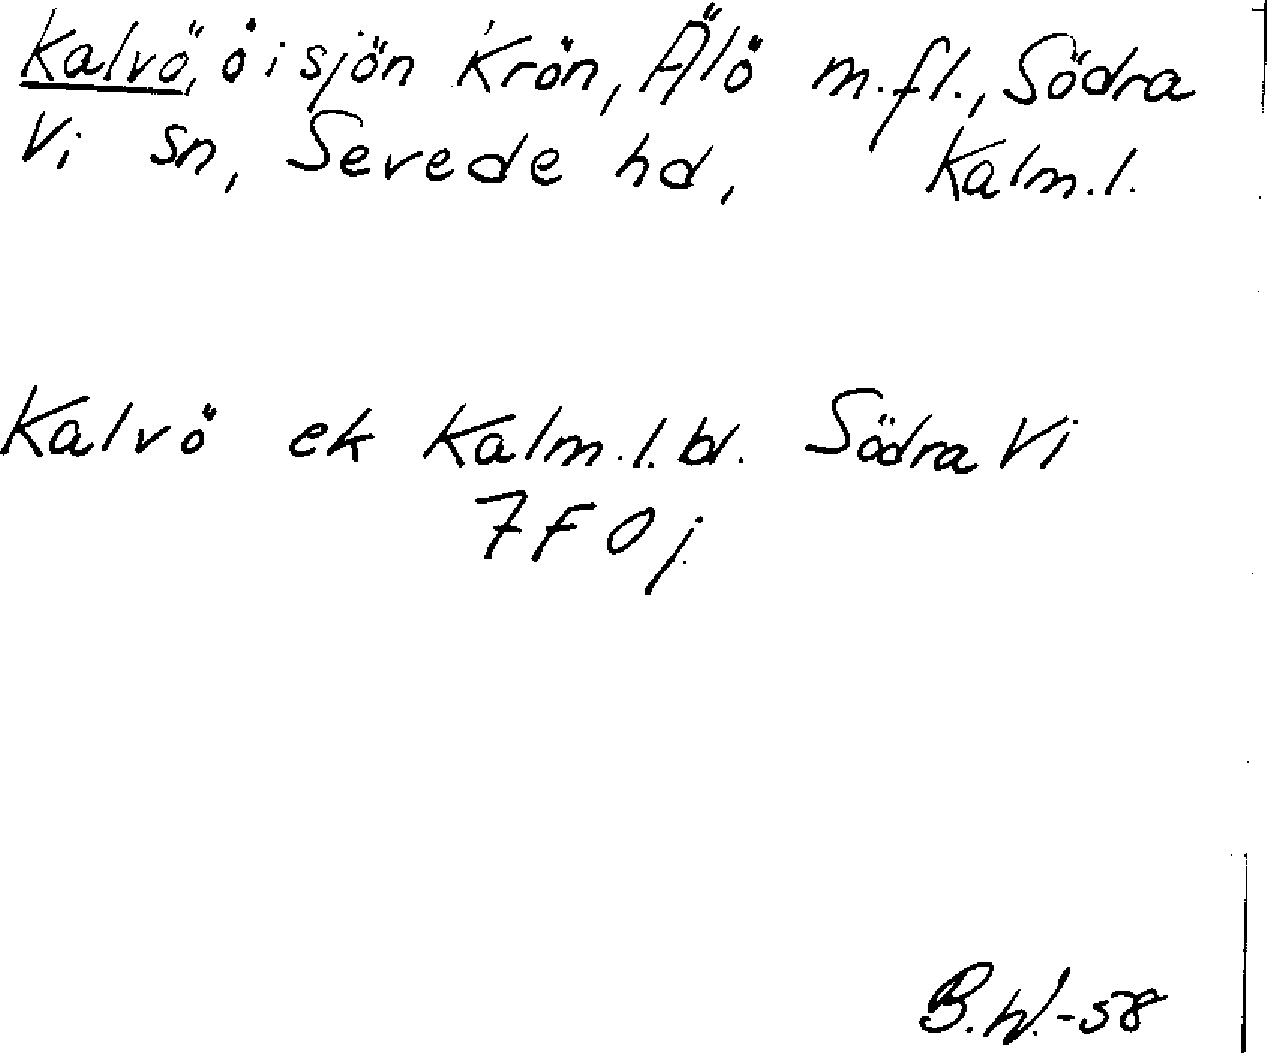 Kalvö, ö i sjön Krön, Älö m.fl., Södra
Vi sn, Sevede hd, Kalm.l.
Kalvö ek Kalm.l.bl. Södra Vi
7F0j
B.W.-58